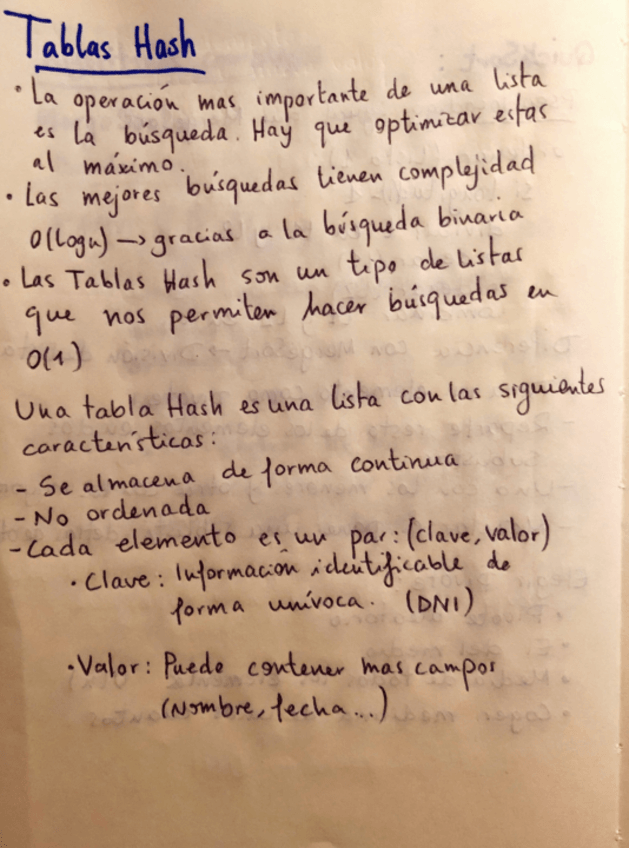 Tablas Hash
• La operación mas importante de una lista
es la búsqueda. Hay que optimizar estas
al máximo.
• Las mejores búsquedas tienen complejidad
O(logn) → gracias a la búsqueda binaria
• Las Tablas Hash son un tipo de listas
que nos permiten hacer búsquedas en
O(1)
Una tabla Hash es una lista con las siguientes
características:
- Se almacena de forma continua
- No ordenada
- Cada elemento es un par: (clave, valor)
• Clave: Información identificable de
forma unívoca. (DNI)
• Valor: Puede contener mas campos
(Nombre, fecha...)